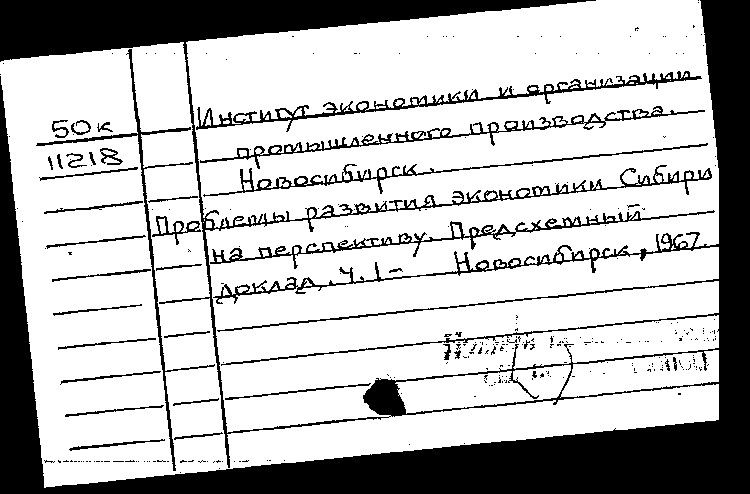 50к
11218
Институт экономики и организации
промышленного производства.
Новосибирск.
Проблемы развития экономики Сибири
на перспективу. Предсхемный
доклад. Ч. 1 – Новосибирск, 1967.